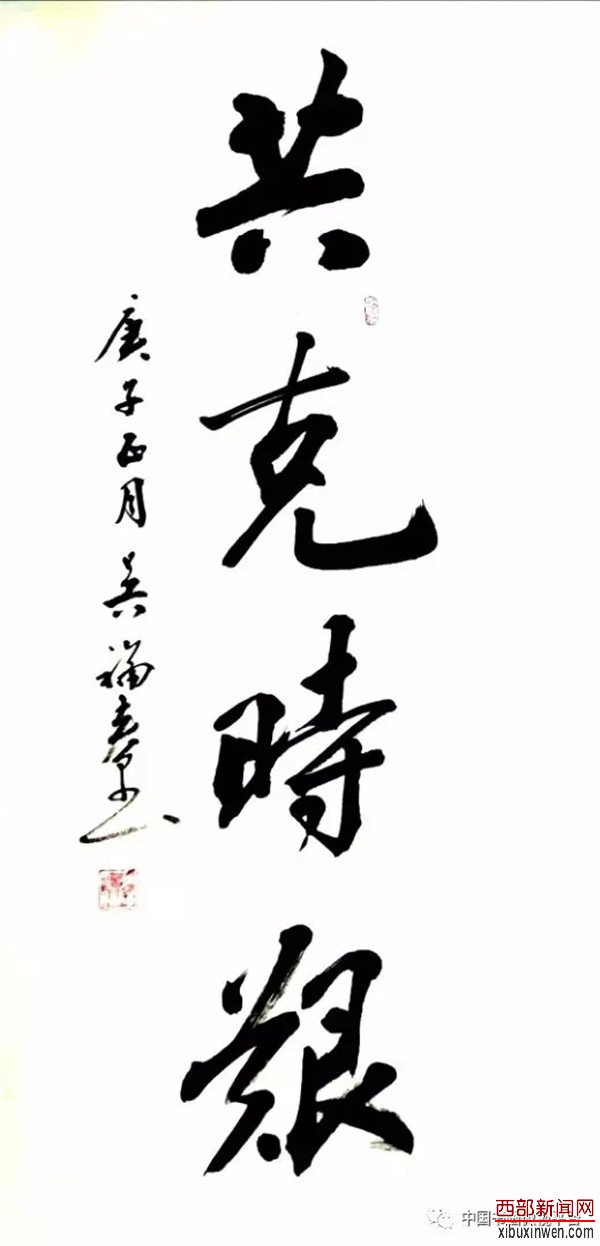 共克時艱
庚子正月吴福春
西部新闻网
xibuxinwen.com
中国书画